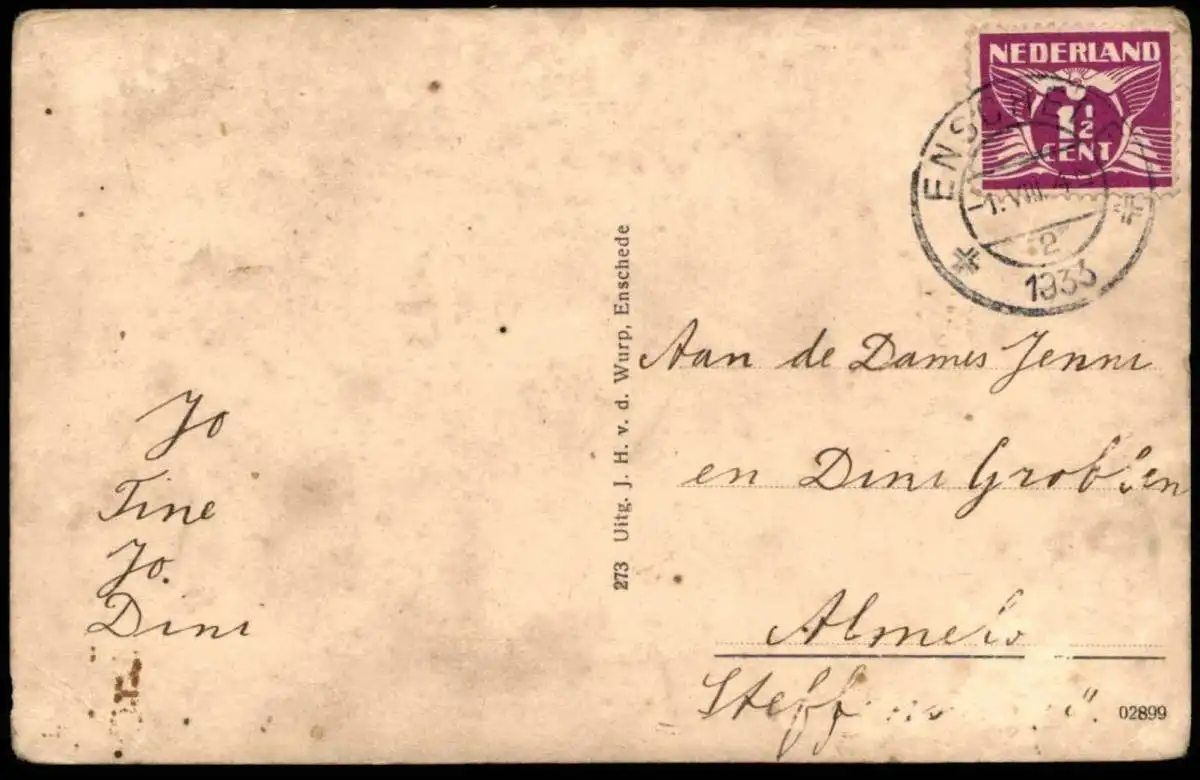 NEDERLAND
1½
CENT
ENSCHEDE
1.VIII.
2
1933
Jo
Tine
Jo.
Dini
273 Uitg. J. H. v. d. Wurp, Enschede
Aan de Dames Jenni
en Dini Grobben
Almelo
02899